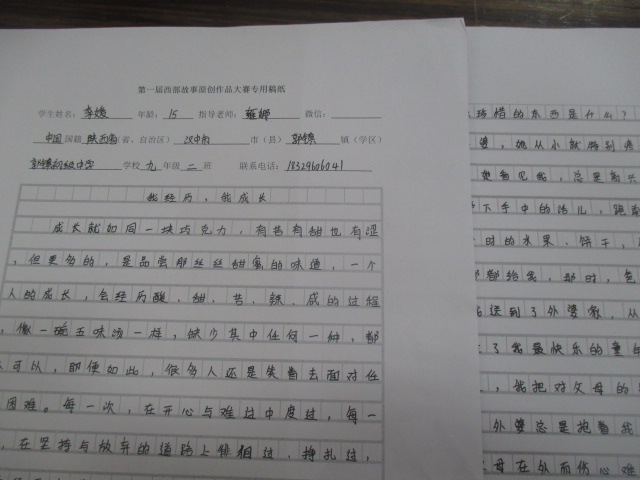 第一届西部故事原创作品大赛专用稿纸
学生姓名：李媛 年龄：15 指导老师： 微信：
中国国籍 陕西省（省、自治区）汉中市 市（县） 镇（学区）
初级中学 学校 九 年级 二 班 联系电话：18329606041
我经历，我成长
成长就如同一块巧克力，有苦有甜也有涩
，但更多的，是品尝那丝丝甜蜜的味道，一个
人的成长，会经历酸、甜、苦、辣、咸的过程
，像一碗五味汤一样，缺少其中任何一种，都
可以，即便如此，很多人还是失当去面对任
困难。每一次，在开心与难过中度过，每一
，在坚持与放弃的道路上徘徊过，挣扎过，
珍惜的东西是什么？
婆，她从小就特别疼
看见我，总是高兴
下手中的活儿，跑
时的水果、饼干，
都给我，那时，
送到了外婆家，从
了我最快乐的童年
，我把对父母的
外婆总是抱着我
母在外而伤心难